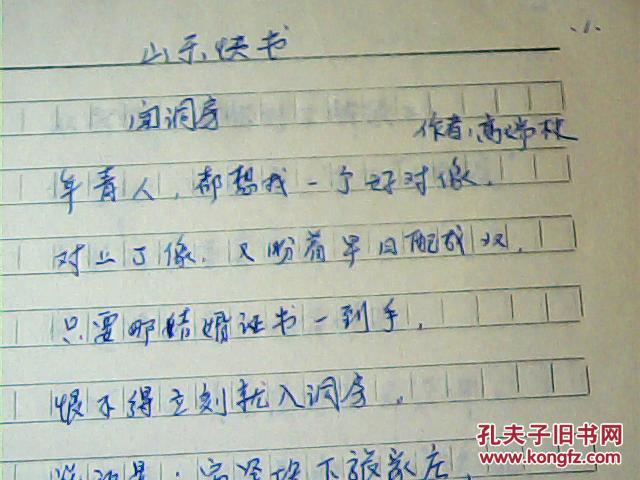 山东快书
·1·
闹洞房
作者:高
年青人,都想找一个好对像,
对上了像,又盼着早日配成双,
只要那结婚证书一到手,
恨不得立刻就入洞房,
下
孔夫子旧书网
www.kongfz.com